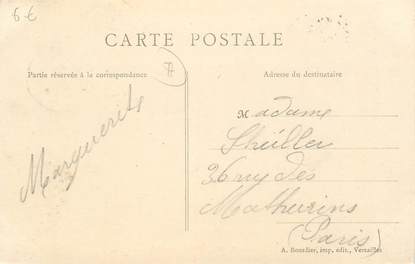 6€
CARTE POSTALE
Partie réservée à la correspondance
Adresse du destinataire
Marguerite
Madame
36 rue des
Mathurins
(Paris)
A. Bourdier, imp. édit., Versailles